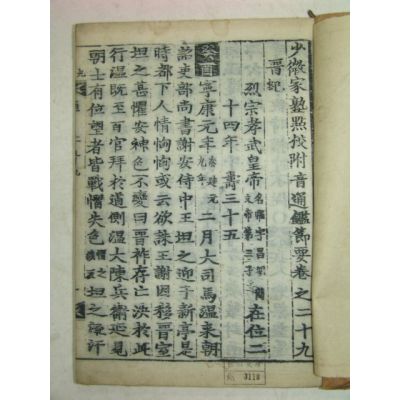 少微家塾點校附音通鑑節要卷之二十九
晋紀
烈宗孝武皇帝 名曜字昌明簡文帝第三子 在位二
十四年壽三十五
癸酉寧康元年 秦建元九年 二月大司馬温来朝
詔吏部尚書謝安侍中王坦之迎于新亭是
時都下人情恟恟或云欲誅王謝因移晋室
坦之甚懼安神色不變曰晋祚存亡决於此
行温旣至百官拜於道側温大陳兵衛延見
朝士有位望者皆戰慴失色 坦之流汗
3118